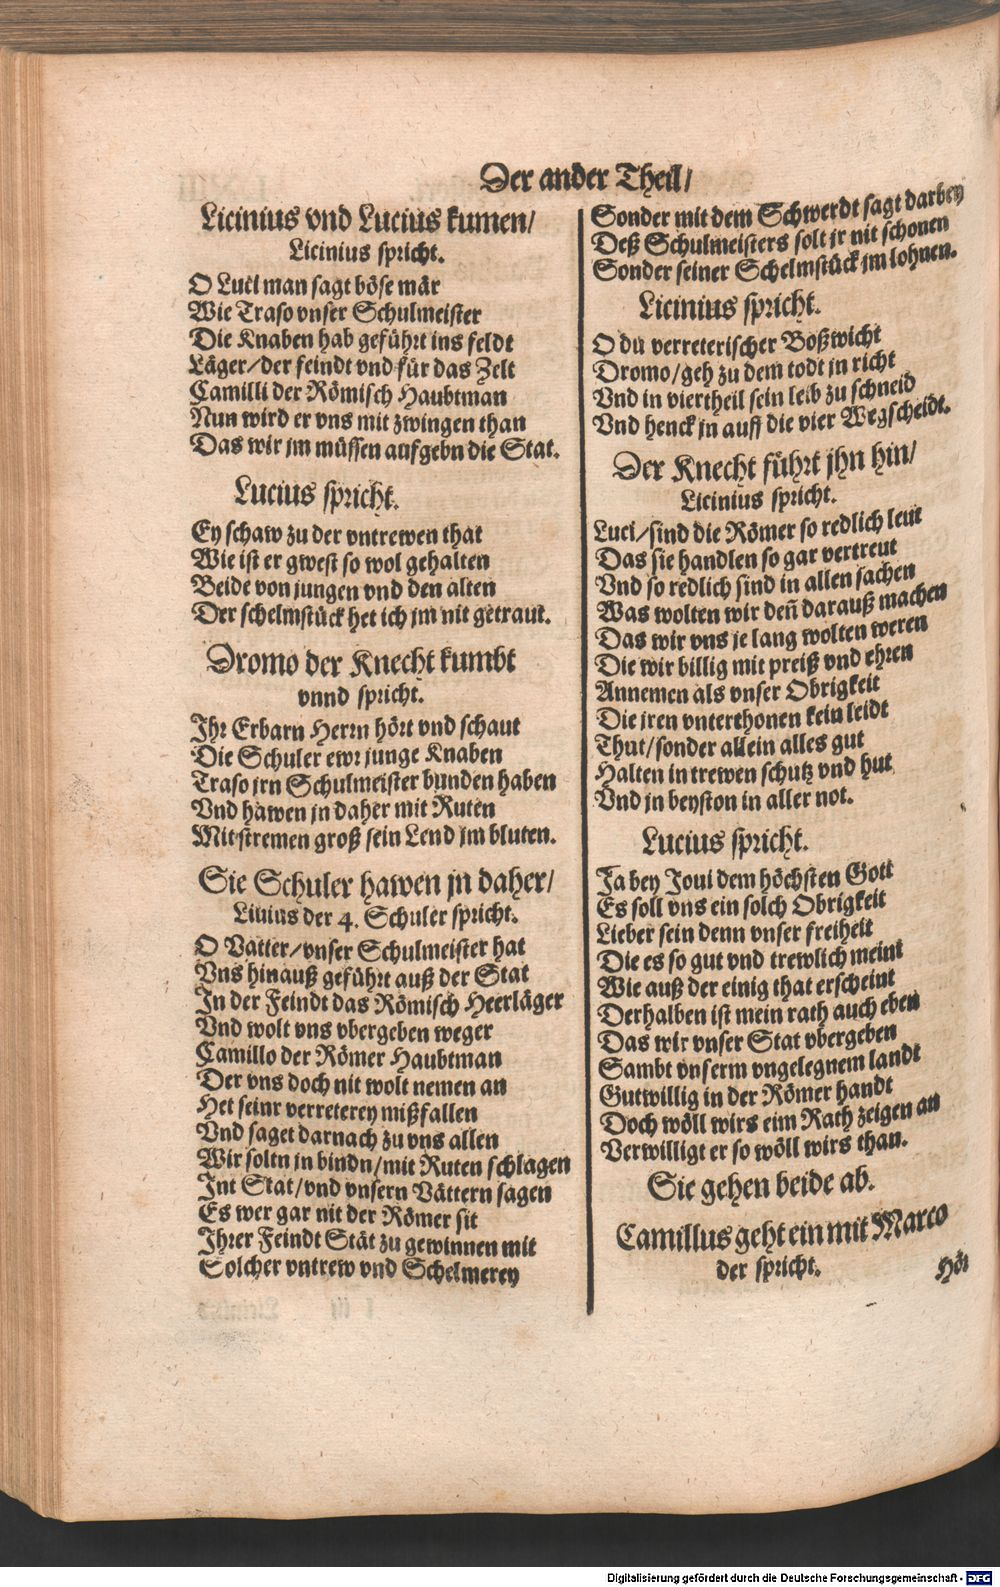 Der ander Theil/
Licinius vnd Lucius kumen/
Licinius spricht.
O Luci man sagt böse mär
Wie Traso vnser Schulmeister
Die Knaben hab geführt ins feldt
Läger/der feindt vnd für das Zelt
Camilli der Römisch Haubtman
Nun wird er vns mit zwingen than
Das wir jm müssen aufgebn die Stat.
Lucius spricht.
Ey schaw zu der vntrewen that
Wie ist er gwest so wol gehalten
Beide von jungen vnd den alten
Der schelmstück het ich jm nit getraut.
Dromo der Knecht kumbt
vnnd spricht.
Ihr Erbarn Herrn hört vnd schaut
Die Schuler ewr junge Knaben
Traso jrn Schulmeister bunden haben
Vnd hawen jn daher mit Ruten
Mit stremen groß sein Lend jm bluten.
Sie Schuler hawen jn daher/
Liuius der 4. Schuler spricht.
O Vätter/vnser Schulmeister hat
Vns hinauß geführt auß der Stat
In der Feindt das Römisch Heerläger
Vnd wolt vns vbergeben weger
Camillo der Römer Haubtman
Der vns doch nit wolt nemen an
Het seinr verreterey mißfallen
Vnd saget darnach zu vns allen
Wir soltn jn bindn/mit Ruten schlagen
Int Stat/vnd vnsern Vättern sagen
Es wer gar nit der Römer sit
Ihrer Feindt Stät zu gewinnen mit
Solcher vntrew vnd Schelmerey
Sonder mit dem Schwerdt sagt darbey
Deß Schulmeisters solt jr nit schonen
Sonder seiner Schelmstück jm lohnen.
Licinius spricht.
O du verreterischer Boßwicht
Dromo/geh zu dem todt jn richt
Vnd in viertheil sein leib zu schneid
Vnd henck jn auff die vier Wegscheidt.
Der Knecht führt jhn hin/
Licinius spricht.
Luci/sind die Römer so redlich leut
Das sie handlen so gar vertreut
Vnd so redlich sind in allen sachen
Was wolten wir deñ darauß machen
Das wir vns je lang wolten weren
Die wir billig mit preiß vnd ehren
Annemen als vnser Obrigkeit
Die jren vnterthonen kein leidt
Thut/sonder allein alles gut
Halten in trewen schutz vnd hut
Vnd jn beyston in aller not.
Lucius spricht.
Ja bey Joui dem höchsten Gott
Es soll vns ein solch Obrigkeit
Lieber sein denn vnser freiheit
Die es so gut vnd trewlich meint
Wie auß der einig that erscheint
Derhalben ist mein rath auch eben
Das wir vnser Stat vbergeben
Sambt vnserm vngelegnem landt
Gutwillig in der Römer handt
Doch wöll wirs eim Rath zeigen an
Verwilligt er so wöll wirs than.
Sie gehen beide ab.
Camillus geht ein mit Marco
der spricht.
Hör
Digitalisierung gefördert durch die Deutsche Forschungsgemeinschaft - DFG